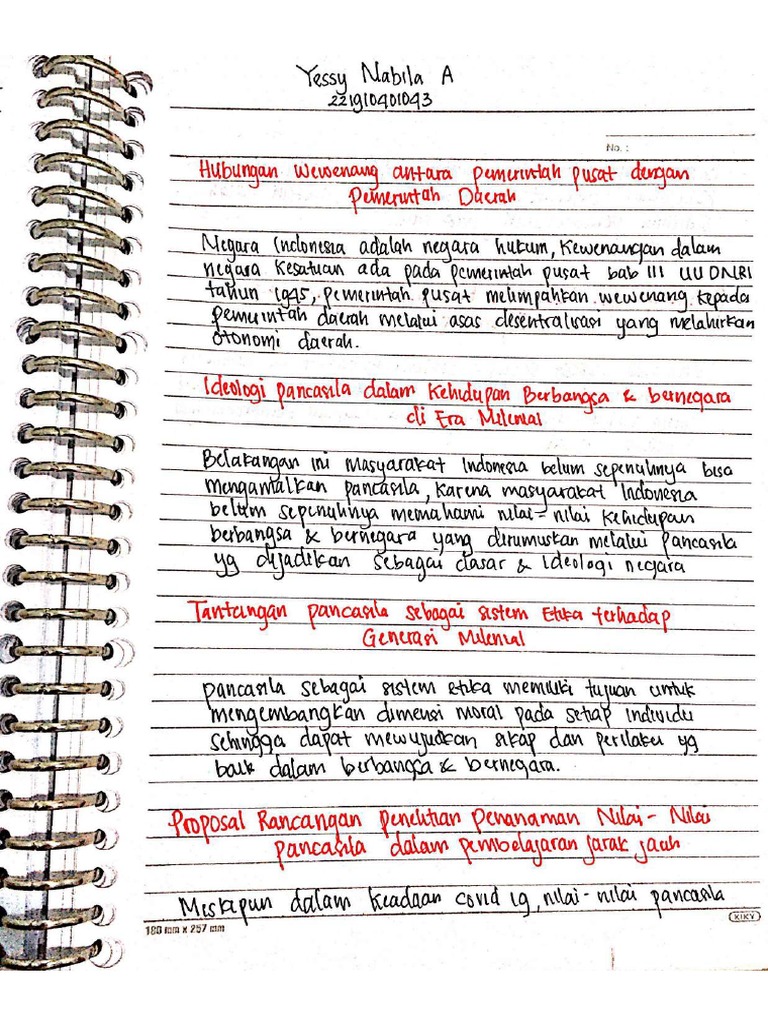 Yessy Nabila A
221910401043
No. :
Hubungan wewenang antara pemerintah pusat dengan
Pemerintah Daerah
Negara Indonesia adalah negara hukum, Kewenangan dalam
negara Kesatuan ada pada pemerintah pusat bab III UUDNRI
tahun 1945, pemerintah pusat melimpahkan wewenang kepada
pemerintah daerah melalui asas desentralisasi yang melahirkan
otonomi daerah.
Ideologi pancasila dalam Kehidupan Berbangsa & bernegara
di Era Milenial
Belakangan ini masyarakat Indonesia belum sepenuhnya bisa
mengamalkan pancasila, karena masyarakat Indonesia
belum sepenuhnya memahami nilai-nilai kehidupan
berbangsa & bernegara yang dirumuskan melalui pancasila
yg dijadikan sebagai dasar & Ideologi negara
Tantangan pancasila sebagai sistem Etika terhadap
Generasi Milenial
pancasila sebagai sistem Etika memiliki tujuan untuk
mengembangkan dimensi moral pada setiap individu
sehingga dapat mewujudkan sikap dan perilaku yg
baik dalam berbangsa & bernegara.
Proposal Rancangan penelitian Penanaman Nilai-Nilai
pancasila dalam pembelajaran jarak jauh
Meskipun dalam keadaan covid 19, nilai-nilai pancasila
KIKY
180 mm x 257 mm